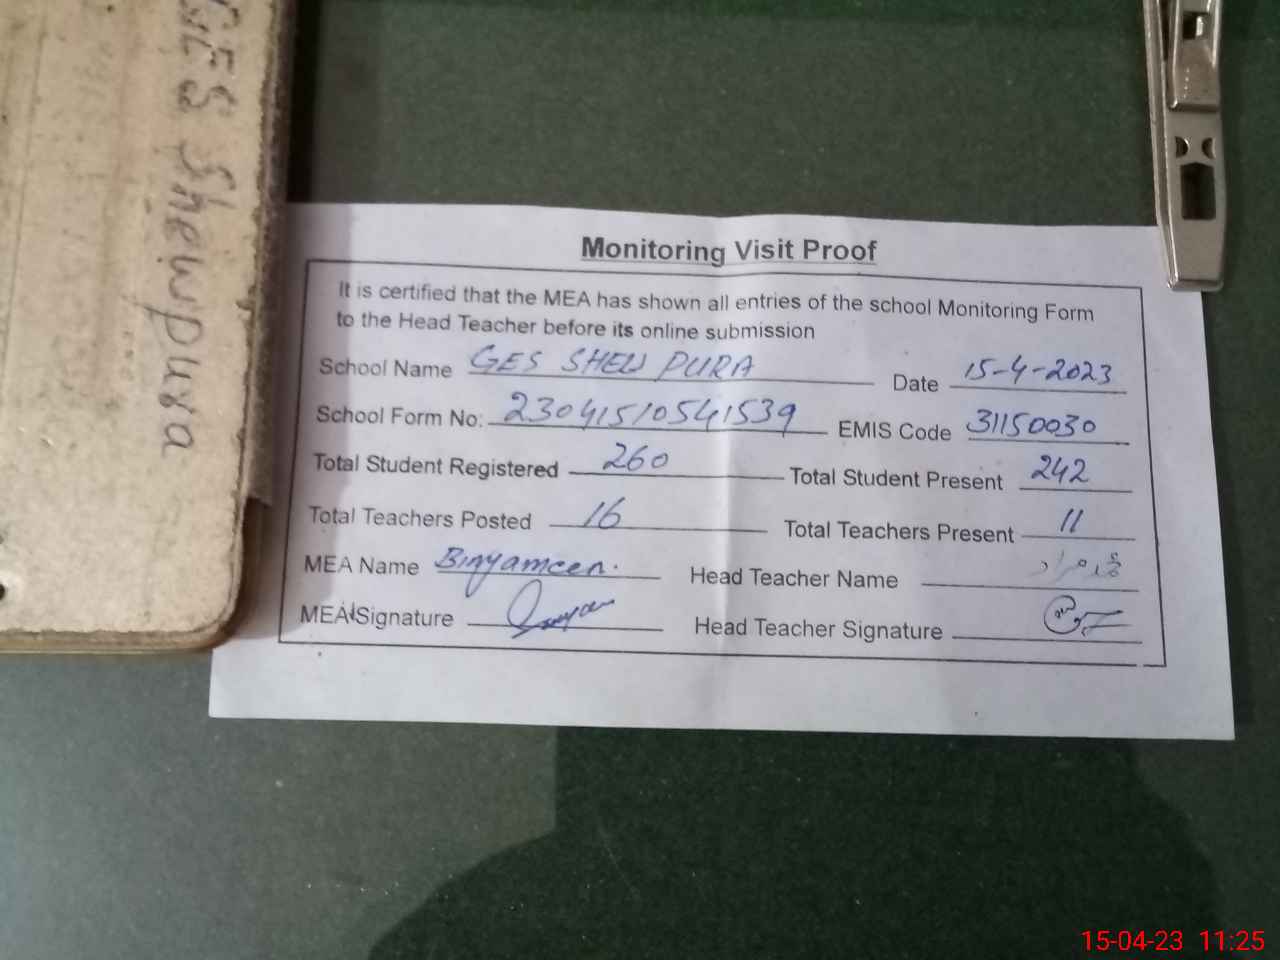 GES Shewpura
Monitoring Visit Proof
It is certified that the MEA has shown all entries of the school Monitoring Form
to the Head Teacher before its online submission
School Name GES SHEW PURA Date 15-4-2023
School Form No: 23041510541539 EMIS Code 31150030
Total Student Registered 260 Total Student Present 242
Total Teachers Posted 16 Total Teachers Present 11
MEA Name Binyameen. Head Teacher Name
MEA Signature Head Teacher Signature
15-04-23 11:25